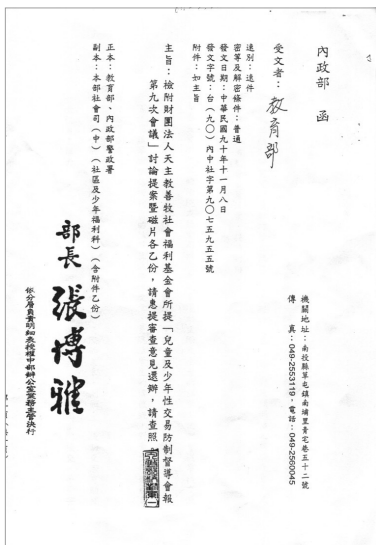 內政部　函
機關地址：南投縣草屯鎮南埔里青宅巷五十二號
傳　真：049-2553119・電話：049-2560045
受文者：教育部
速別：速件
密等及解密條件：普通
發文日期：中華民國九十年十一月八日
發文字號：台（九〇）內中社字第九〇七五九五五號
附件：如主旨
主旨：檢附財團法人天主教善牧社會福利基金會所提「兒童及少年性交易防制督導會報
第九次會議」討論提案暨磁片各乙份，請惠提審查意見還辦，請查照
正本：教育部、內政部警政署
副本：本部社會司（中）（社區及少年福利科）（含附件乙份）
部長　張博雅
依分層負責明細表授權中部辦公室業務主管決行